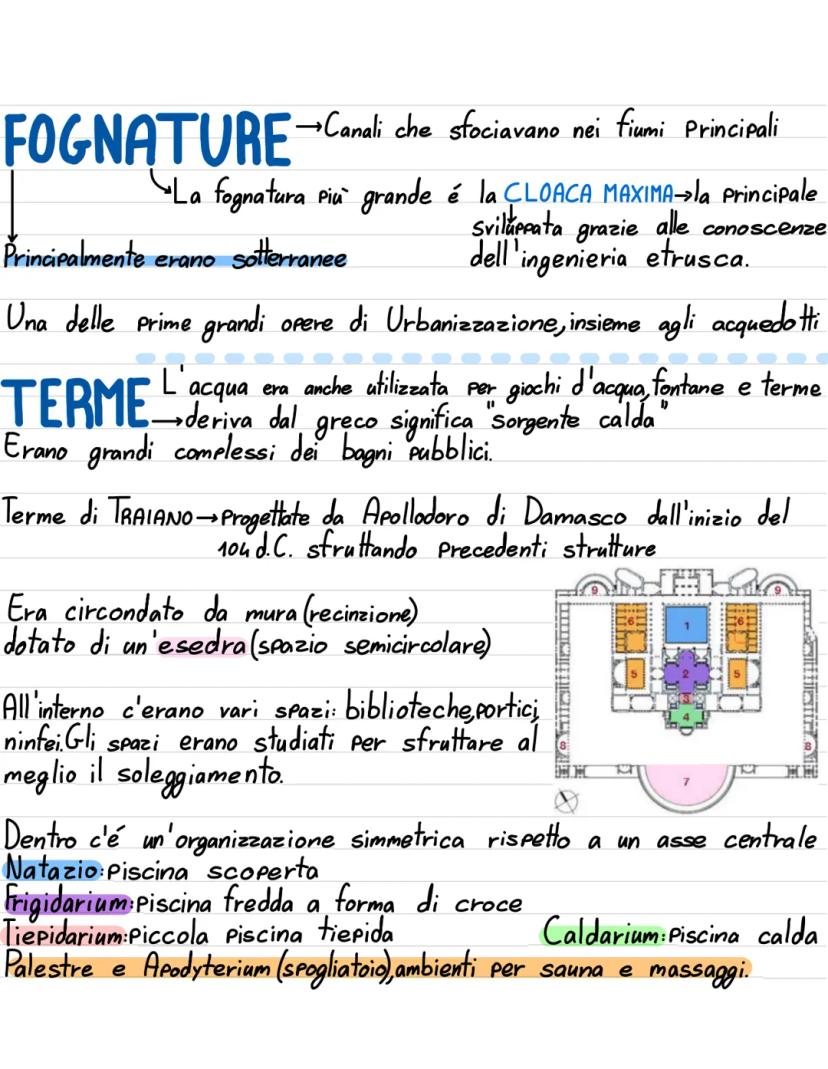 FOGNATURE →Canali che sfociavano nei fiumi Principali
La fognatura Più grande é la CLOACA MAXIMA→la Principale
sviluppata grazie alle conoscenze
Principalmente erano sotterranee
dell'ingenieria etrusca.
Una delle Prime grandi opere di Urbanizzazione, insieme agli acquedotti
TERME L'acqua era anche utilizzata Per giochi d'acqua, fontane e terme
→deriva dal greco significa "sorgente calda"
Erano grandi complessi dei bagni Pubblici.
Terme di TRAIANO→Progettate da Apollodoro di Damasco dall'inizio del
104 d.C. sfruttando Precedenti strutture
Era circondato da mura (recinzione)
dotato di un'esedra (spazio semicircolare)
All'interno c'erano vari spazi: biblioteche, portici,
ninfei. Gli spazi erano studiati Per sfruttare al
meglio il soleggiamento.
9 9
6 1 6
5 2 5
3
4
8 8
7
Dentro c'é un'organizzazione simmetrica rispetto a un asse centrale
Natazio: Piscina scoperta
Frigidarium: Piscina fredda a forma di croce
Tiepidarium: Piccola Piscina tiepida Caldarium: Piscina calda
Palestre e Apodyterium (spogliatoio), ambienti Per sauna e massaggi.